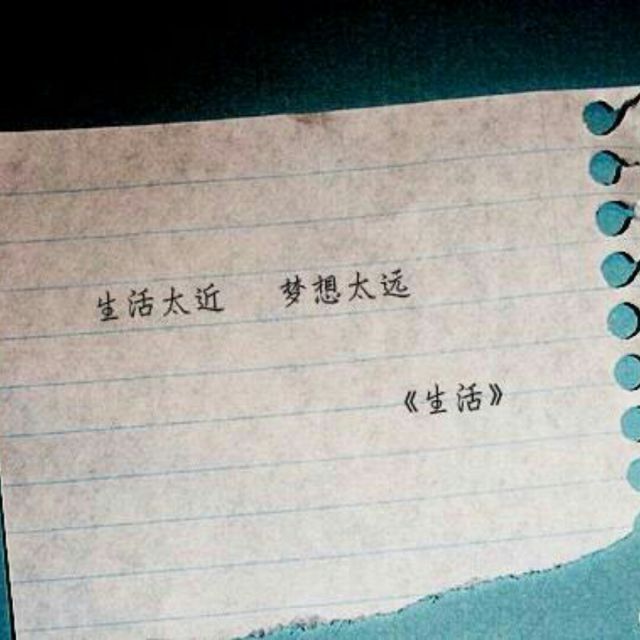 生活太近 梦想太远
《生活》